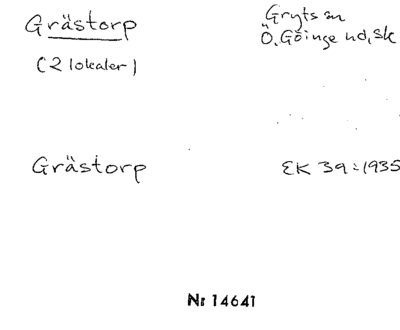 Grästorp
(2 lokaler)
Gryts sn
Ö. Göinge hd, Sk
Grästorp
EK 39:1935
Nr 14641